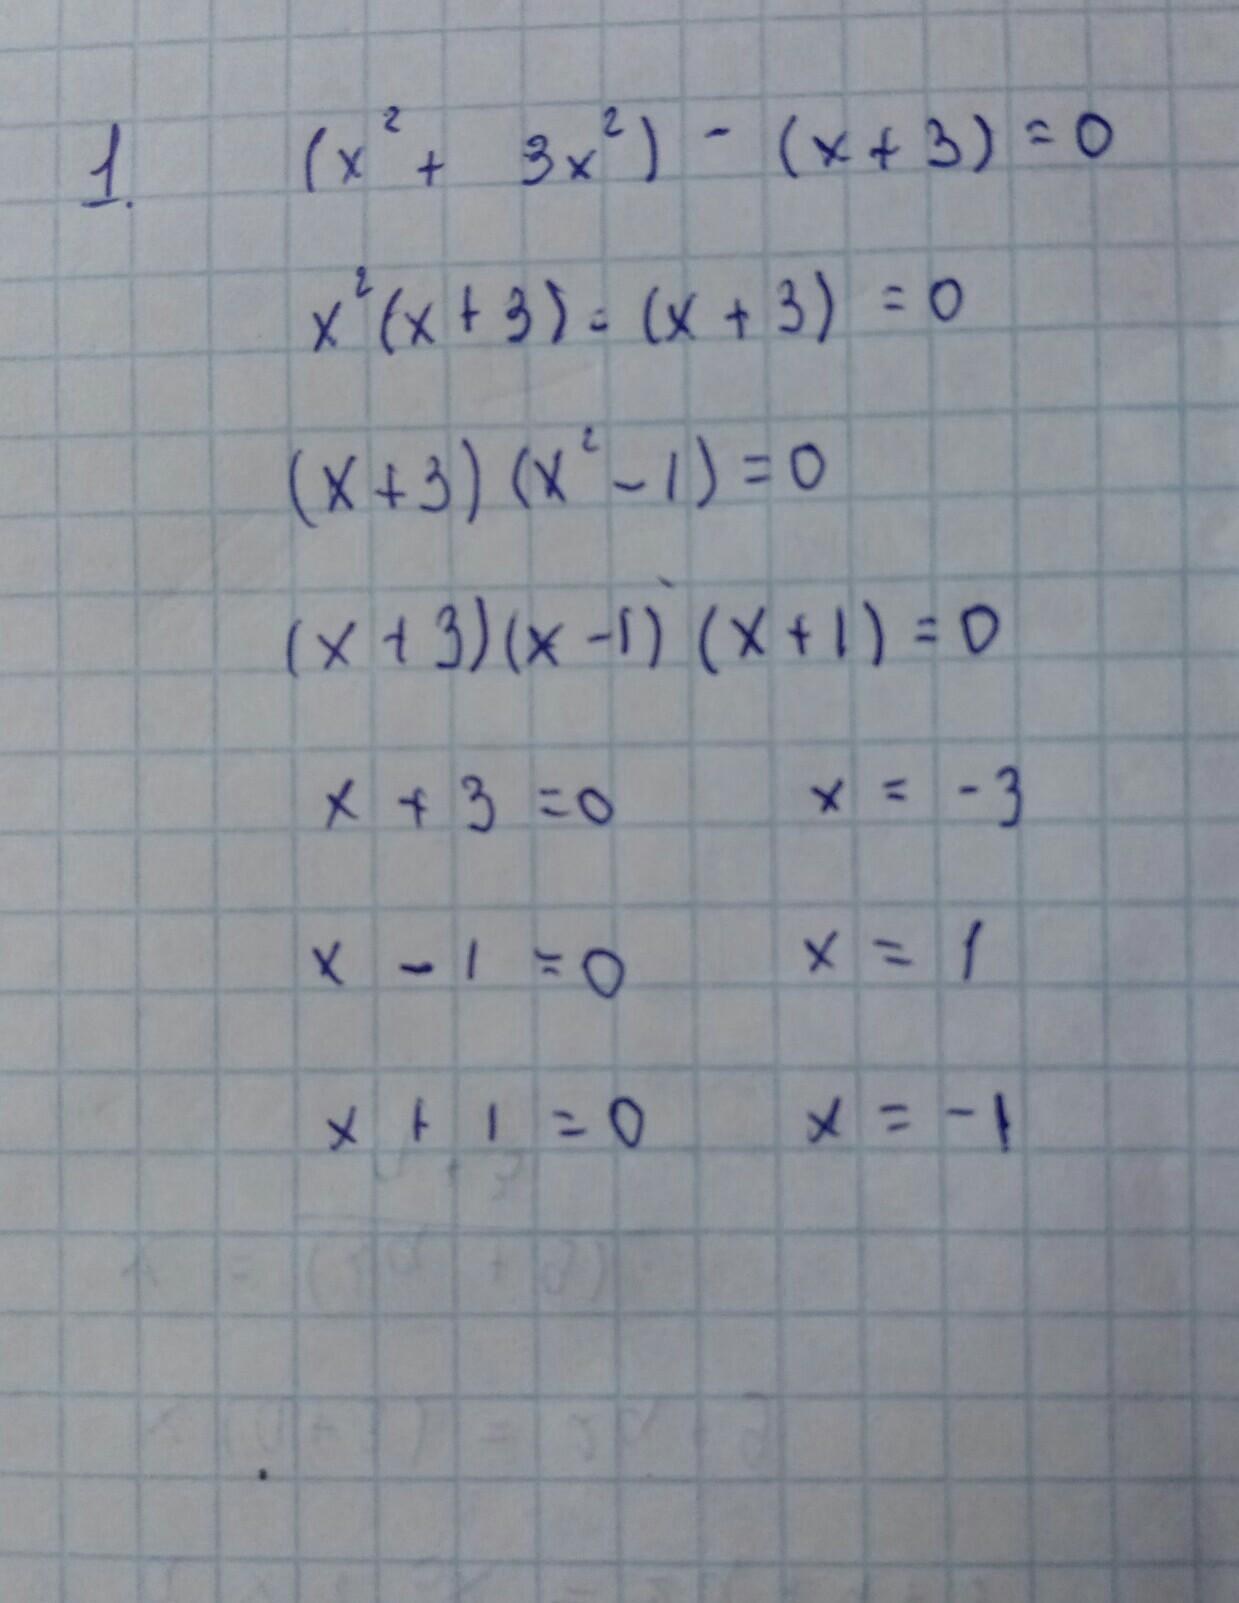 1. (x² + 3x²) - (x + 3) = 0
x²(x + 3) - (x + 3) = 0
(x + 3) (x² - 1) = 0
(x + 3)(x - 1) (x + 1) = 0
x + 3 = 0 x = -3
x - 1 = 0 x = 1
x + 1 = 0 x = -1